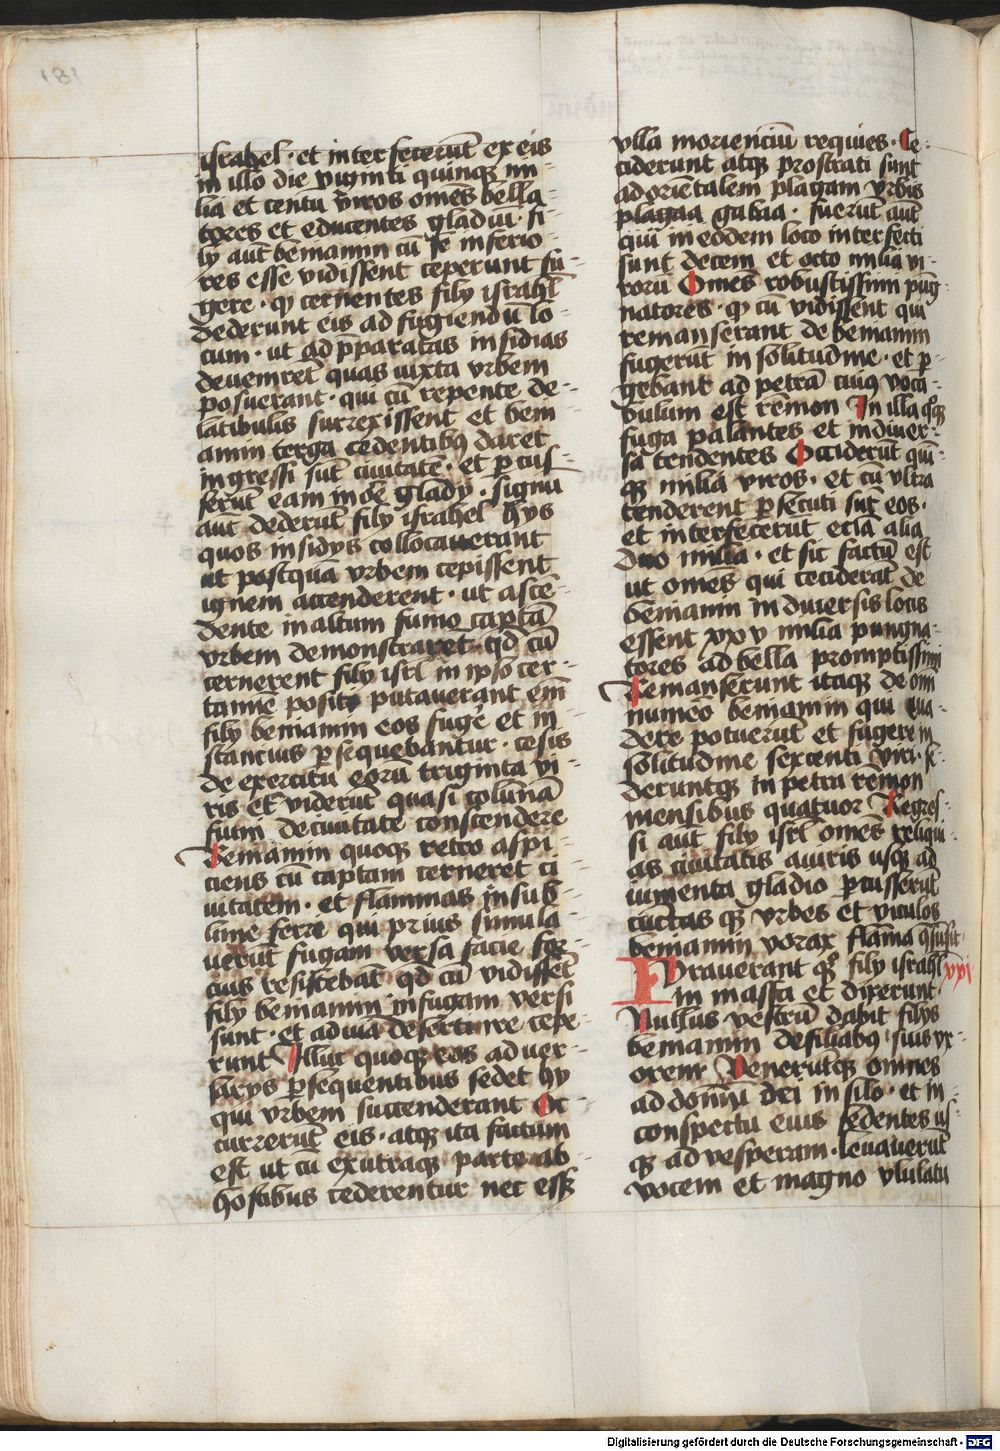 israhel · et interfecerūt ex eis
in illo die viginti quinqꝫ mi-
lia et centū viros om̄es bella-
tores et educentes gladiū · fi-
ly aūt beniamin cū se inferio-
res esse vidissent ceperunt fu-
gere · qꝫ cernentes fily israhl̄
dederunt eis ad fugiendū lo-
cum · ut ad p̄paratas insidias
deuenirēt quas iuxta vrbem
posuerant · qui cū repente de-
latibulis surrexissent et beni
amin terga cedentibꝫ daret
ingressi sūt ciuitatē · et ꝑcus-
serūt eam in ore glady · signū
aūt dederūt fily israhel hys
quos insidys collocauerant
ut postquā vrbem cepissent
ignem accenderent · ut ascē-
dente in altum fumo captā
vrbem demonstraret · qd̄ cū
cernerent fily isrl̄ in ipso cer-
tamīe positi putauerant em̄
fily beniamin eos fuge͛ et in
stancius ꝑsequebantur · cesis
de exercitu eorū triginta vi-
ris Et viderūt quasi colūnā
fumi de ciuitate conscendere
Beniamin quoqꝫ retro aspi-
ciens cū captam cerneret ci
uitatem · et flammas in sub-
lime ferri qui prius simula
uerūt fugam versa facie for-
cius resistebāt qd̄ cū vidissēt
fily beniamin in fugam versi
sunt · et ad uiā deserti ire cepe-
runt Illuc quoqꝫ eos aduer-
sarys ꝑsequentibus sed et hy
qui vrbem succenderant Oc-
currerūt eis · atqꝫ ita factum
est ut cū ex utraqꝫ parte ab-
hostibus cederentur nec esset
vlla morienciū requies · Ce-
ciderunt atqꝫ prostrati sunt
ad orietalem plagam vrbis
plagaa gabaa · fuerūt aūt
qui in eodem loco interfecti
sunt decem et octo milia vi-
rorū Om̄es robustissimi pūg-
natores · qꝫ cū vidissent qui
remanserant de beniamin
fugerūt in solitudīne · et ꝑ-
gebant ad petrā cuiꝯ voca-
bulum est remon In illa qꝫ
fuga palantes et in diuer-
sa tendentes Occiderūt quī-
qꝫ milia viros · et cū vltra
tenderent ꝑsecuti sūt eos ·
et interfecerūt eciā alia
duo milia · et sic factū est
ut om̄es qui ceciderāt de
beniamin in diuersis locis
essent xxv milia pungna-
tores ad bella promptissimi
Remanserunt itaqꝫ de om̄i
numero beniamin qui eua-
dere potuerūt et fugere in
solitudīne sexcenti viri · se-
deruntqꝫ in petra remon
mensibus quatuor Regres-
si aūt fily isrl̄ om̄es reliqui-
as ciuitatis a viris usqꝫ ad
iumenta gladio ꝑcusserūt
cūctas qꝫ vrbes et viculos
beniamin vorax flāma cōsūsit ·
Iurauerant qꝫ fily israhl̄ xxi
in massa et dixerunt ·
Nullus vestrū dabit filys
beniamin de filiabꝫ suis vx-
orem Venerūtqꝫ omnes
ad domū dei in silo · et in
conspectu eius sedentes us-
qꝫ ad vesperam · leuauerūt
vocem et magno vlulatu
181
Digitalisierung gefördert durch die Deutsche Forschungsgemeinschaft - DFG